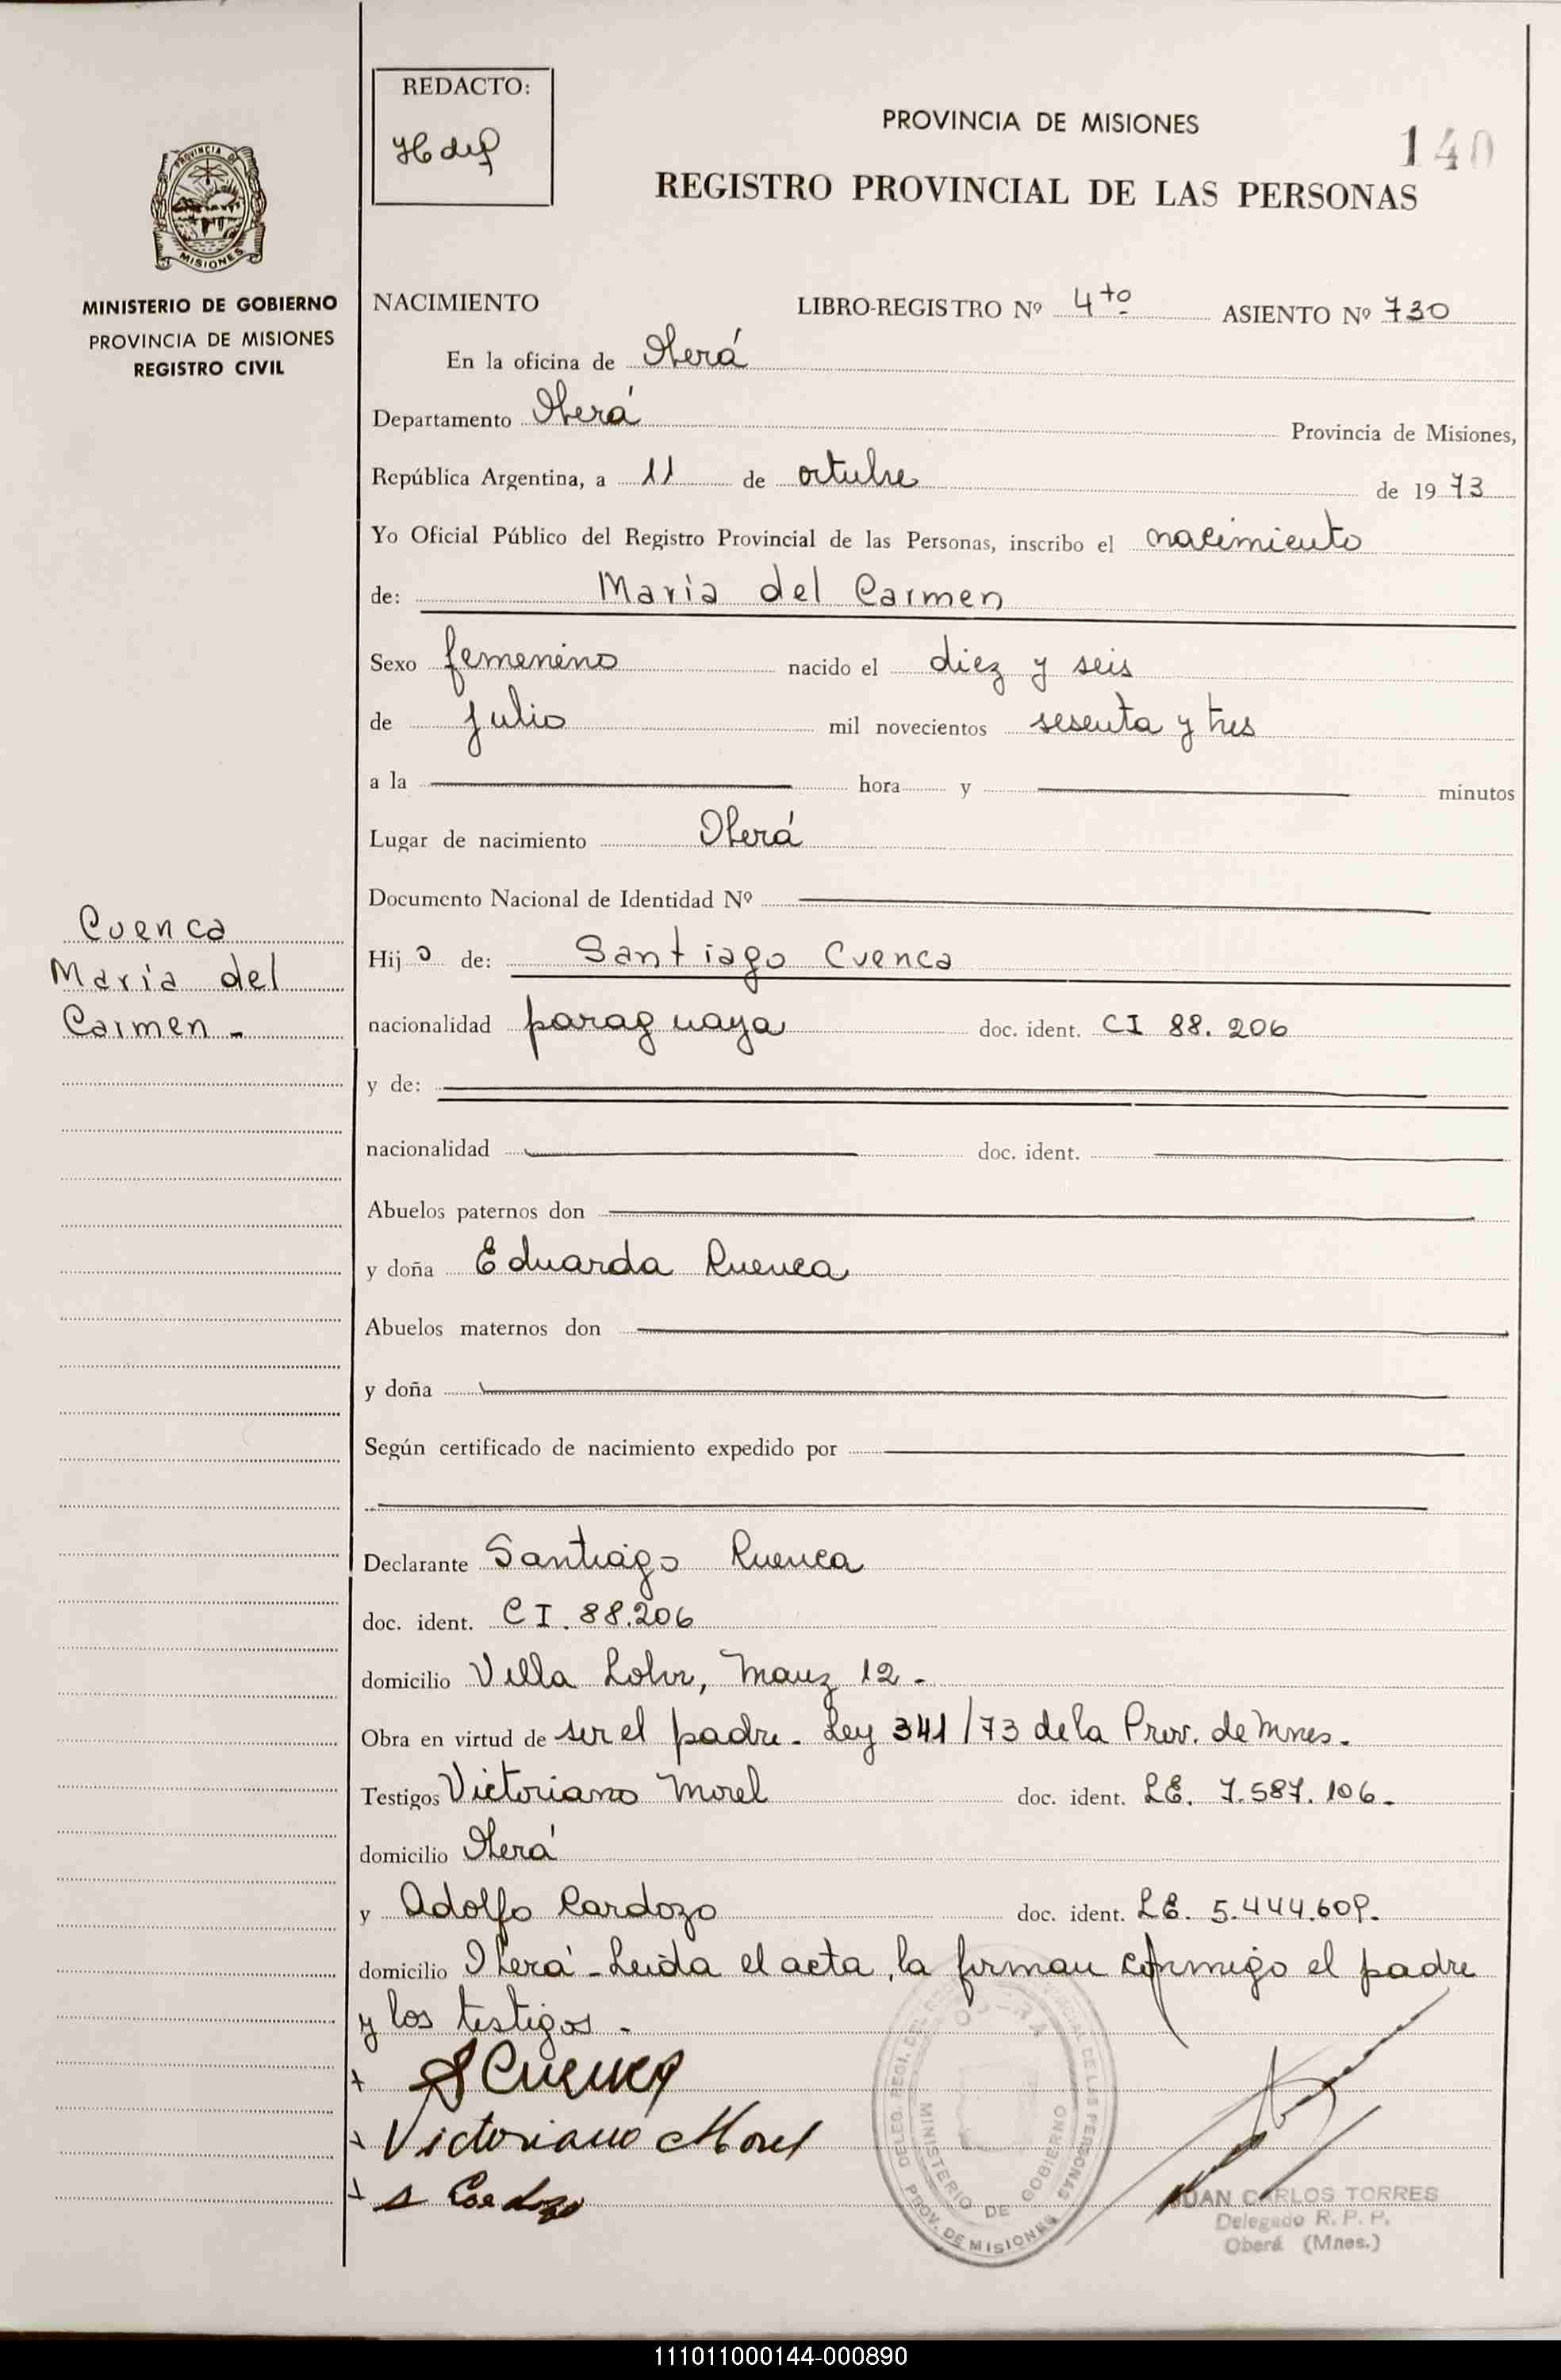 REDACTO:
PROVINCIA DE MISIONES
140
REGISTRO PROVINCIAL DE LAS PERSONAS
PROVINCIA DE
MISIONES
MINISTERIO DE GOBIERNO
PROVINCIA DE MISIONES
REGISTRO CIVIL
NACIMIENTO LIBRO-REGISTRO Nº 4to ASIENTO Nº 730
En la oficina de Oberá
Departamento Oberá Provincia de Misiones,
República Argentina, a 11 de octubre de 1973
Yo Oficial Público del Registro Provincial de las Personas, inscribo el nacimiento
de: María del Carmen
Sexo femenino nacido el diez y seis
de julio mil novecientos sesenta y tres
a la hora y minutos
Lugar de nacimiento Oberá
Documento Nacional de Identidad Nº
Cuenca
María del
Carmen -
Hija de: Santiago Cuenca
nacionalidad paraguaya doc. ident. CI 88.206
y de:
nacionalidad doc. ident.
Abuelos paternos don
y doña Eduarda Cuenca
Abuelos maternos don
y doña
Según certificado de nacimiento expedido por
Declarante Santiago Cuenca
doc. ident. CI. 88.206
domicilio Villa Lohr, Manz 12 -
Obra en virtud de ser el padre - Ley 341/73 de la Prov. de Mnes.
Testigos Victoriano Morel doc. ident. LE. 7.587.106 -
domicilio Oberá
y Adolfo Cardozo doc. ident. LE. 5.444.609.
domicilio Oberá - Leida el acta, la firman conmigo el padre
y los testigos -
S Cuenca
Victoriano Morel
A Cardozo
MINISTERIO DE GOBIERNO
PROV. DE MISIONES
JUAN CARLOS TORRES
Delegado R. P. P.
Oberá (Mnes.)
111011000144-000890